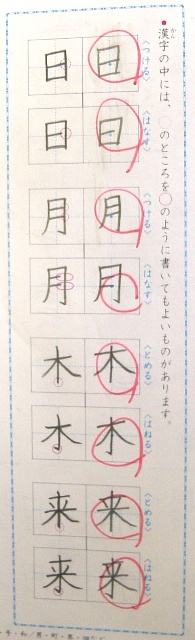 ●漢字の中には、○のところを○のように書いてもよいものがあります。
かん
〈つける〉
日 日
〈はなす〉
日 日
〈つける〉
月 月
〈はなす〉
月 月
〈とめる〉
木 木
〈はねる〉
木 木
〈とめる〉
来 来
〈はねる〉
来 来